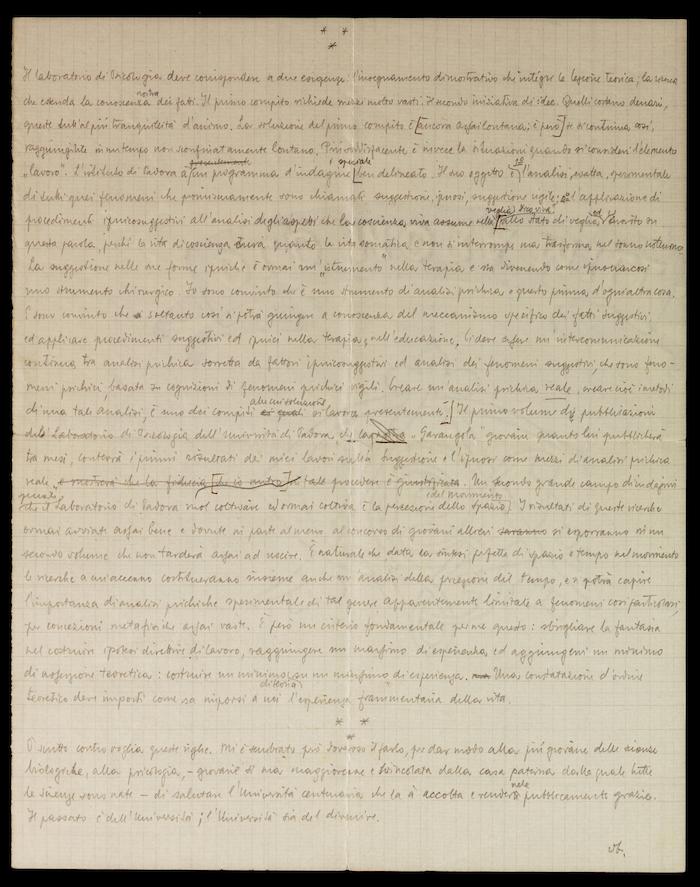 * *
*
Il laboratorio di Psicologia deve corrispondere a due esigenze: l'insegnamento dimostrativo che integri le lezioni teoriche; la ricerca
che estenda la conoscenza nostra dei fatti. Il primo compito richiede mezzi molto vasti. Il secondo iniziativa di idee. Quelli costano denari,
queste tutt'al più tranquillità d'animo. La soluzione del primo compito è [ancora assai lontana; è però] di continuo, così,
raggiungibile in un tempo non sconfinatamente lontano. Più soddisfacente è invece la situazione quando si consideri l'elemento
"lavoro". L'istituto di Padova à un programma d'indagine speciale [ben delineato. Il suo oggetto è l'analisi, esatta, sperimentale
di tutti quei fenomeni che comunemente sono chiamati suggestione, ipnosi, suggestione vigile; e l'applicazione di
procedimenti ipnosuggestivi all'analisi degli aspetti che la coscienza viva assume nello stato di veglia,
questa parola, perché la vita di coscienza dura quanto la vita somatica e non s'interrompe ma trasforma nel sonno
La suggestione nelle sue forme ipniche è ormai un "istrumento" nella terapia e sta divenendo come
uno strumento chirurgico. Io sono convinto che è uno strumento di analisi psichica e questo prima d'ogni altra cosa.
E sono convinto che soltanto così si potrà giungere a conoscenza del meccanismo specifico dei fatti suggestivi,
ed applicare procedimenti suggestivi ed ipnici nella terapia, nell'educazione. Ci deve essere un'intercomunicazione
continua tra analisi psichica sorretta da fattori ipnosuggestivi ed analisi dei fenomeni suggestivi, che sono feno-
meni psichici, basata su cognizioni di fenomeni psichici vigili. Creare un analisi psichica reale, creare cioè i metodi
di una tale analisi, è uno dei compiti alle cui soluzioni si lavora presentemente.] Il primo volume di pubblicazioni
del Laboratorio di Psicologia dell'Università di Padova "Garangola" giovane quanto lui pubblicherà
tra mesi, conterrà i primi risultati dei miei lavori sulla Suggestione e l'ipnosi come mezzi di analisi psichica
reale, e mostrerà che la fiducia in tale procedere è giustificata. Un secondo grande campo di indagini
che il Laboratorio di Padova vuol coltivare ed ormai coltiva è la percezione dello spazio, e del movimento. I risultati di queste ricerche
ormai avviate assai bene e dovute in parte almeno al concorso di giovani allievi saranno si esporranno in un
secondo volume che non tarderà assai ad uscire. È naturale che data la sintesi perfetta di spazio e tempo nel movimento
le ricerche a cui accenno costituiranno insieme anche un analisi della percezione del tempo, e si potrà capire
l'importanza di analisi psichiche sperimentali di tal genere apparentemente limitate a fenomeni così particolari,
per concezioni metafisiche assai vaste. È però un criterio fondamentale per me questo: sbrigliare la fantasia
nel costruire ipotesi direttive di lavoro, raggiungere un massimo di esperienza ed aggiungervi un minimo
di asserzione teoretica: costruire un minimo di teoria su un massimo di esperienza. Una constatazione d'ordine
teoretico deve imporsi come sa imporsi a noi l'esperienza frammentaria della vita.
* *
*
Ò scritto contro voglia queste righe. Mi è sembrato però doveroso il farlo, per dar modo alla più giovane delle scienze
biologiche, alla psicologia, – giovane sì ma maggiorenne e svincolata dalla casa paterna dalla quale tutte
le scienze sono nate – di salutare l'Università centenaria che la à accolta e renderne pubblicamente grazie.
Il passato è dell'Università; l'Università sia del divenire.
vb.